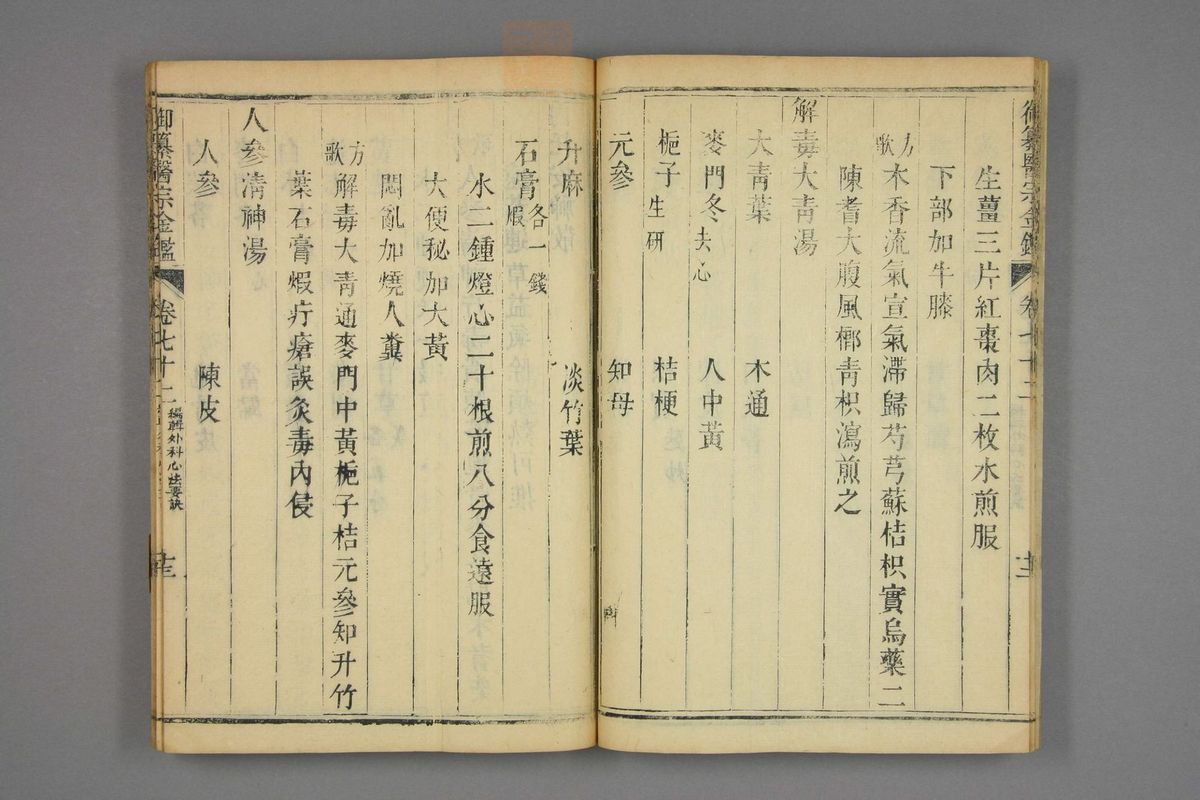 生薑三片紅棗肉二枚水煎服
下部加牛膝
方歌
木香流氣宣氣滯歸芍芎蘇桔枳實烏藥二
陳耆大腹風檳青枳瀉煎之
解毒大青湯
大青葉 木通
麥門冬去心 人中黃
梔子生研 桔梗
元參 知母
升麻 淡竹葉
石膏煅各一錢
水二鍾燈心二十根煎八分食遠服
大便秘加大黃
悶亂加燒人糞
方歌
解毒大青通麥門中黃梔子桔元參知升竹
葉石膏煅疔瘡誤灸毒內侵
人參清神湯
人參 陳皮
御纂醫宗金鑑
卷七十二
編輯外科心法要訣